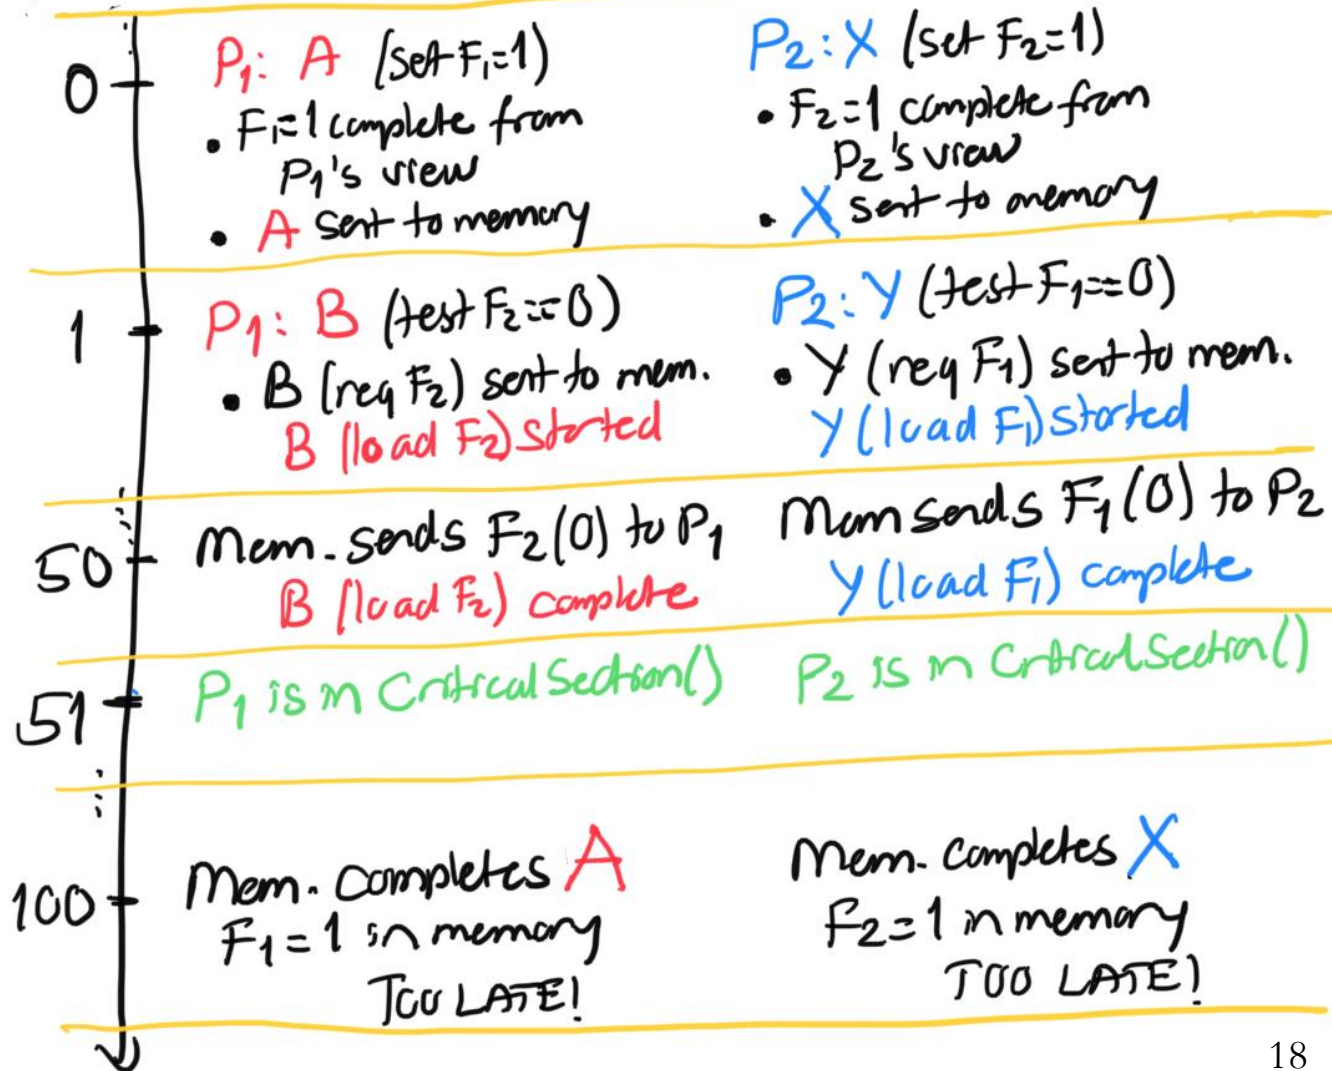 0
P₁: A (set F₁=1)
• F₁=1 complete from
P₁'s view
• A sent to memory
P₂: X (set F₂=1)
• F₂=1 complete from
P₂'s view
• X sent to memory
1
P₁: B (test F₂==0)
• B (req F₂) sent to mem.
B (load F₂) started
P₂: Y (test F₁==0)
• Y (req F₁) sent to mem.
Y (load F₁) started
50
Mem. sends F₂(0) to P₁
B (load F₂) complete
Mem sends F₁(0) to P₂
Y (load F₁) complete
51
P₁ is in CriticalSection()
P₂ is in CriticalSection()
100
Mem. completes A
F₁=1 in memory
TOO LATE!
Mem. completes X
F₂=1 in memory
TOO LATE!
18